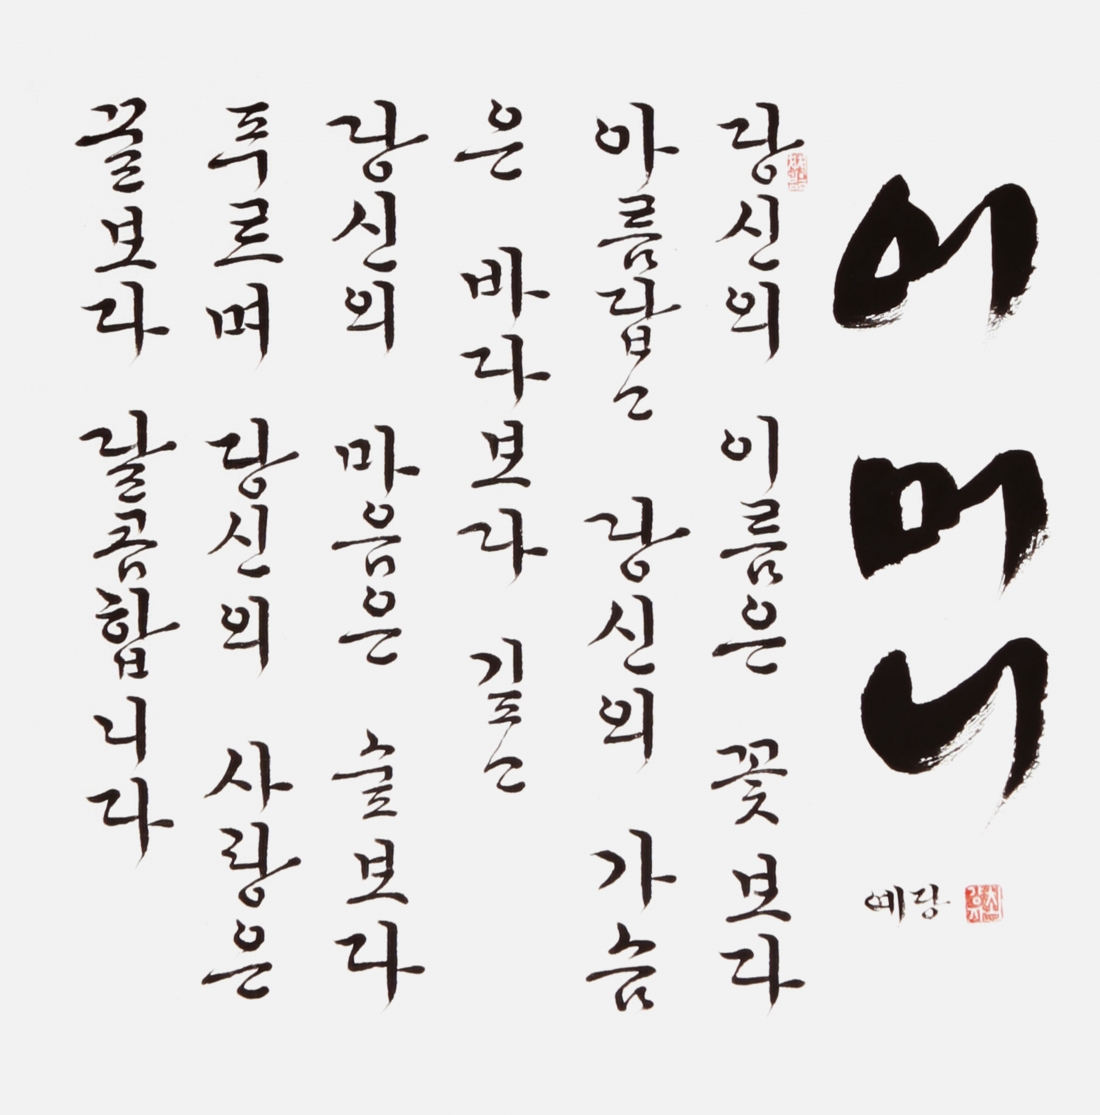 어머니
예당
당신의 이름은 꽃보다
아름답고 당신의 가슴
은 바다보다 깊고
당신의 마음은 숲보다
푸르며 당신의 사랑은
꿀보다 달콤합니다